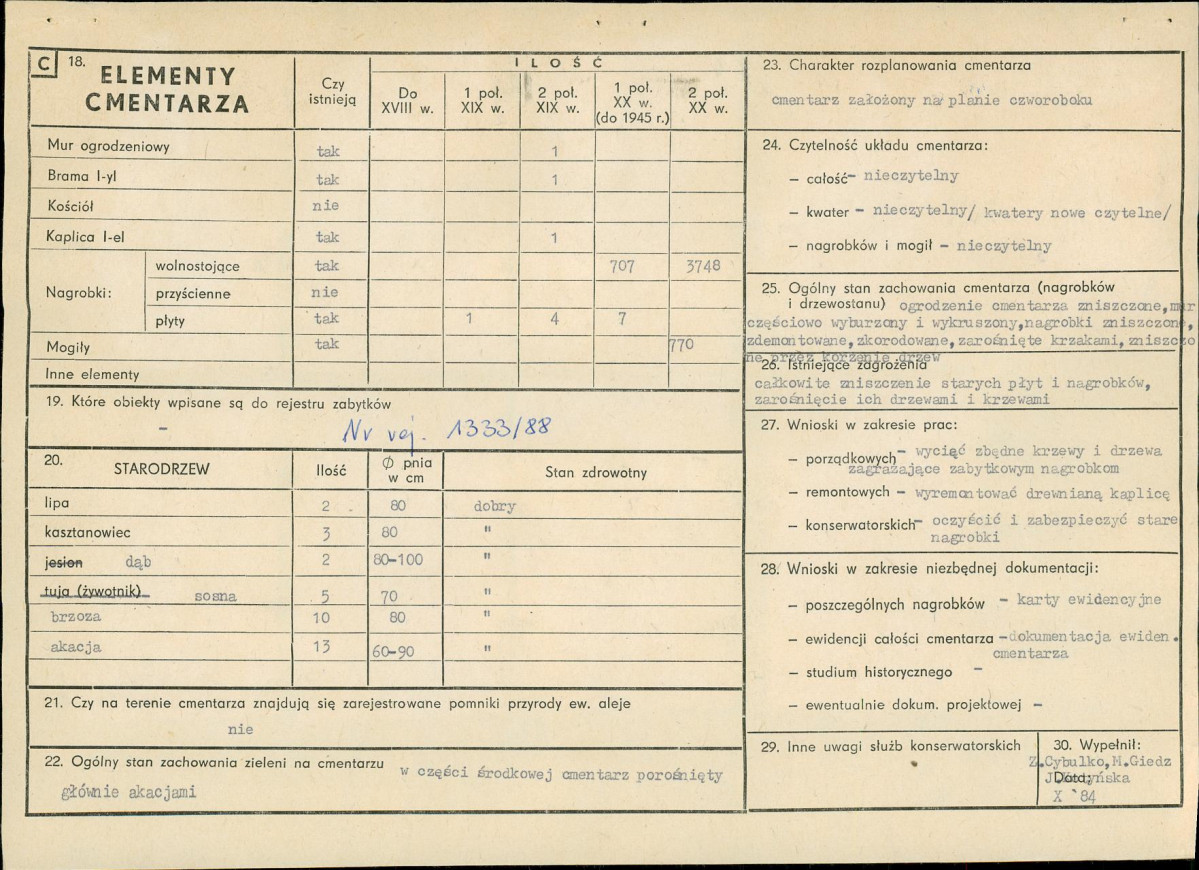 C 18. ELEMENTY CMENTARZA
Czy istnieją
ILOŚĆ
Do XVIII w.
1 poł. XIX w.
2 poł. XIX w.
1 poł. XX w. (do 1945 r.)
2 poł. XX w.
Mur ogrodzeniowy tak 1
Brama I-yl tak 1
Kościół nie
Kaplica I-el tak 1
Nagrobki: wolnostojące tak 707 3748
przyścienne nie
płyty tak 1 4 7
Mogiły tak 770
Inne elementy
19. Które obiekty wpisane są do rejestru zabytków
– Nr rej. 1333/88
20. STARODRZEW Ilość Ø pnia w cm Stan zdrowotny
lipa 2 . 80 dobry
kasztanowiec 3 80 "
jesion dąb 2 80-100 "
tuja (żywotnik) sosna 5 70 "
brzoza 10 80 "
akacja 13 60-90 "
21. Czy na terenie cmentarza znajdują się zarejestrowane pomniki przyrody ew. aleje
nie
22. Ogólny stan zachowania zieleni na cmentarzu w części środkowej cmentarz porośnięty
głównie akacjami
23. Charakter rozplanowania cmentarza
cmentarz założony na planie czworoboku
24. Czytelność układu cmentarza:
– całość- nieczytelny
– kwater - nieczytelny/ kwatery nowe czytelne/
– nagrobków i mogił - nieczytelny
25. Ogólny stan zachowania cmentarza (nagrobków
i drzewostanu) ogrodzenie cmentarza zniszczone, mur
częściowo wyburzony i wykruszony, nagrobki zniszczone,
zdemontowane, zkorodowane, zarośnięte krzakami, zniszczo
ne przez korzenie drzew
26. Istniejące zagrożenia
całkowite zniszczenie starych płyt i nagrobków,
zarośnięcie ich drzewami i krzewami
27. Wnioski w zakresie prac:
– porządkowych- wyciąć zbędne krzewy i drzewa
zagrażające zabytkowym nagrobkom
– remontowych - wyremontować drewnianą kaplicę
– konserwatorskich- oczyścić i zabezpieczyć stare
nagrobki
28. Wnioski w zakresie niezbędnej dokumentacji:
– poszczególnych nagrobków - karty ewidencyjne
– ewidencji całości cmentarza -dokumentacja ewiden.
cmentarza
– studium historycznego -
– ewentualnie dokum. projektowej -
29. Inne uwagi służb konserwatorskich
30. Wypełnił:
Z.Cybulko, M.Giedz
Data:
X `84